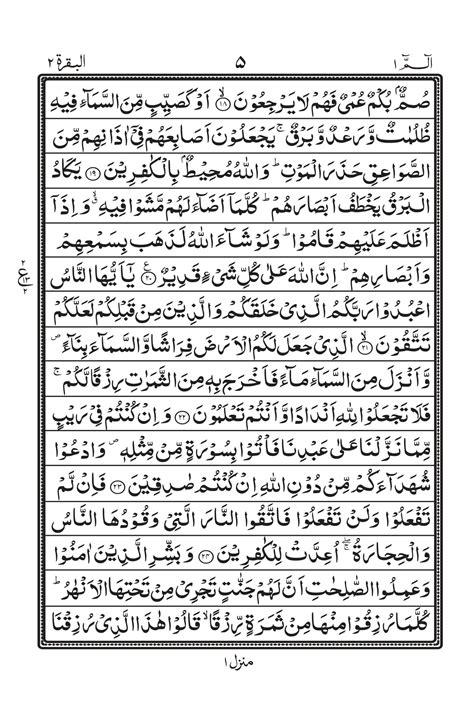 الٓـمّٓ ١ ٥ البقرة ٢
صُمٌّۢ بُكْمٌ عُمْیٌ فَهُمْ لَا یَرْجِعُوْنَ ۙ﴿١٨﴾ اَوْ كَصَیِّبٍ مِّنَ السَّمَآءِ فِیْهِ
ظُلُمٰتٌ وَّ رَعْدٌ وَّ بَرْقٌ ۚ یَجْعَلُوْنَ اَصَابِعَهُمْ فِیْۤ اٰذَانِهِمْ مِّنَ
الصَّوَاعِقِ حَذَرَ الْمَوْتِ ؕ وَ اللّٰهُ مُحِیْطٌۢ بِالْكٰفِرِیْنَ ﴿١٩﴾ یَكَادُ
الْبَرْقُ یَخْطَفُ اَبْصَارَهُمْ ؕ كُلَّمَاۤ اَضَآءَ لَهُمْ مَّشَوْا فِیْهِ ۙۗ وَ اِذَاۤ
اَظْلَمَ عَلَیْهِمْ قَامُوْا ؕ وَ لَوْ شَآءَ اللّٰهُ لَذَهَبَ بِسَمْعِهِمْ
وَ اَبْصَارِهِمْ ؕ اِنَّ اللّٰهَ عَلٰی كُلِّ شَیْءٍ قَدِیْرٌ ﴿٢٠﴾ یٰۤاَیُّهَا النَّاسُ
اعْبُدُوْا رَبَّكُمُ الَّذِیْ خَلَقَكُمْ وَ الَّذِیْنَ مِنْ قَبْلِكُمْ لَعَلَّكُمْ
تَتَّقُوْنَ ۙ﴿٢١﴾ الَّذِیْ جَعَلَ لَكُمُ الْاَرْضَ فِرَاشًا وَّ السَّمَآءَ بِنَآءً ۪
وَّ اَنْزَلَ مِنَ السَّمَآءِ مَآءً فَاَخْرَجَ بِهٖ مِنَ الثَّمَرٰتِ رِزْقًا لَّكُمْ ۚ
فَلَا تَجْعَلُوْا لِلّٰهِ اَنْدَادًا وَّ اَنْتُمْ تَعْلَمُوْنَ ﴿٢٢﴾ وَ اِنْ كُنْتُمْ فِیْ رَیْبٍ
مِّمَّا نَزَّلْنَا عَلٰی عَبْدِنَا فَاْتُوْا بِسُوْرَةٍ مِّنْ مِّثْلِهٖ ۪ وَ ادْعُوْا
شُهَدَآءَكُمْ مِّنْ دُوْنِ اللّٰهِ اِنْ كُنْتُمْ صٰدِقِیْنَ ﴿٢٣﴾ فَاِنْ لَّمْ
تَفْعَلُوْا وَ لَنْ تَفْعَلُوْا فَاتَّقُوا النَّارَ الَّتِیْ وَ قُوْدُهَا النَّاسُ
وَ الْحِجَارَةُ ۖۚ اُعِدَّتْ لِلْكٰفِرِیْنَ ﴿٢٤﴾ وَ بَشِّرِ الَّذِیْنَ اٰمَنُوْا
وَ عَمِلُوا الصّٰلِحٰتِ اَنَّ لَهُمْ جَنّٰتٍ تَجْرِیْ مِنْ تَحْتِهَا الْاَنْهٰرُ ؕ
كُلَّمَا رُزِقُوْا مِنْهَا مِنْ ثَمَرَةٍ رِّزْقًا ۙ قَالُوْا هٰذَا الَّذِیْ رُزِقْنَا
منزل ١